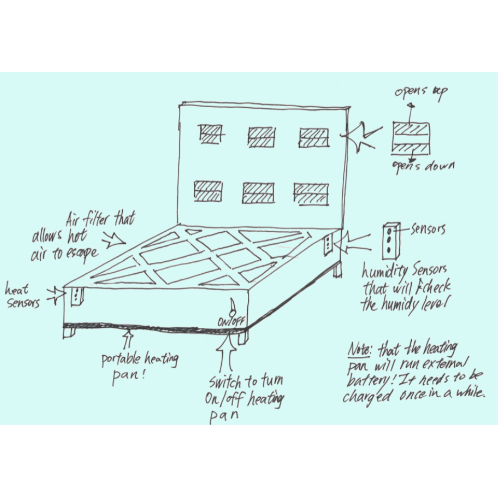 opens up
opens down
Air filter that
allows hot
air to escape
sensors
heat
sensors
humidity Sensors
that will check
the humidy level
ON/OFF
portable heating
pan!
Switch to turn
On/off heating
pan
Note: that the heating
pan will run external
battery! It needs to be
charged once in a while.